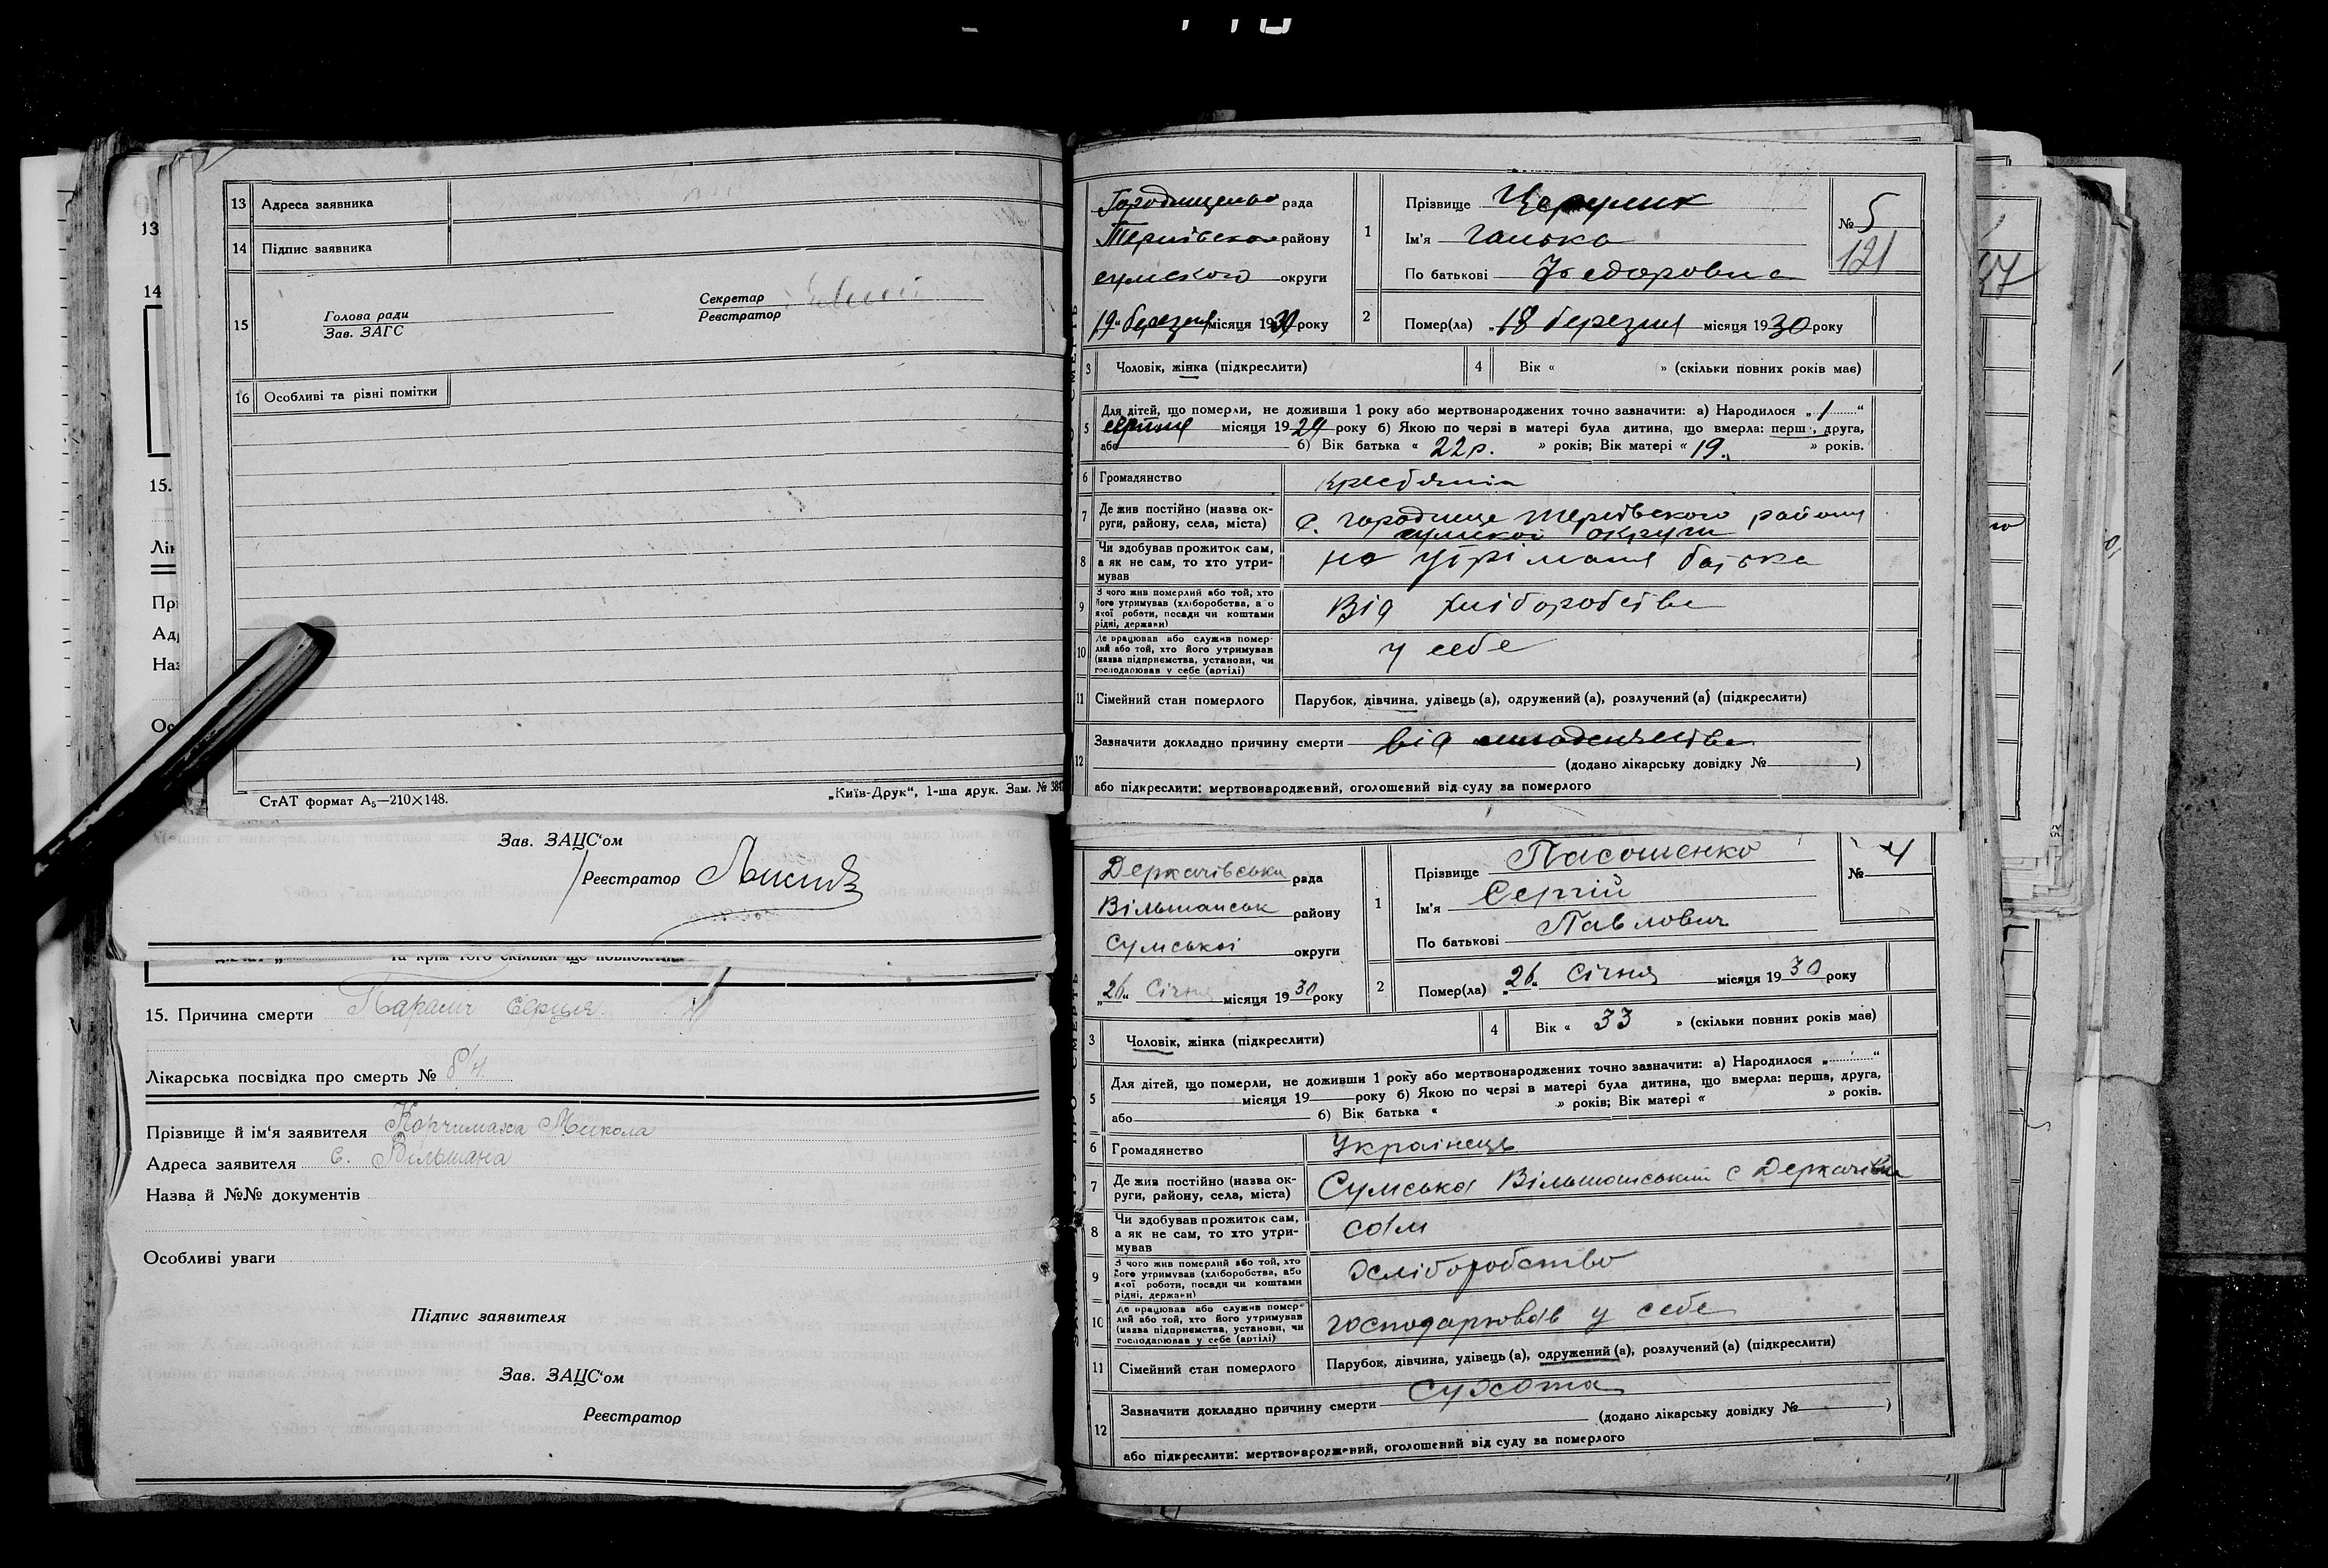 13 Адреса заявника
14 Підпис заявника
15 Голова ради
Зав. ЗАГС
Секретар
Реєстратор
16 Особливі та різні помітки
СтАТ формат А₅—210×148.
„Київ-Друк“, 1-ша друк. Зам. № 3847
Зав. ЗАЦС‘ом
Реєстратор
15. Причина смерти Параліч серця
Лікарська посвідка про смерть № б/н.
Прізвище й ім‘я заявителя Микола
Адреса заявителя с. Вільшана
Назва й №№ документів
Особливі уваги
Підпис заявителя
Зав. ЗАЦС‘ом
Реєстратор
рада
району
сумского округи
„19“ березня місяця 1930 року
1 Прізвище
Ім'я Ганька
По батькові Федоровна
№ 5
121
2 Помер(ла) „18 березня місяця 1930 року
3 Чоловік, жінка (підкреслити)
4 Вік « » (скільки повних років має)
5 Для дітей, що померли, не доживши 1 року або мертвонароджених точно зазначити: а) Народилося „1“
місяця 1929 року б) Якою по черзі в матері була дитина, що вмерла: перша, друга,
або б) Вік батька « 22р. » років; Вік матері « 19 » років.
6 Громадянство
7 Де жив постійно (назва округи, району, села, міста) с. Городище Теріївского района
сумской округи
8 Чи здобував прожиток сам, а як не сам, то хто утримував на утріманя батька
9 З чого жив померлий або той, хто його утримував (хліборобства, або якої роботи, посади чи коштами рідні, держави) Від хліборобства
10 Де працював або служив померлий або той, хто його утримував (назва підприємства, установи, чи господарював у себе (артілі) у себе
11 Сімейний стан померлого Парубок, дівчина, удівець (а), одружений (а), розлучений (а) (підкреслити)
12 Зазначити докладно причину смерти від младенчества
(додано лікарську довідку № )
або підкреслити: мертвонароджений, оголошений від суду за померлого
Деркачівська рада
Вільшанськ району
Сумської округи
„26“ Січня місяця 1930 року
1 Прізвище Пасошенко
Ім'я Сергій
По батькові Павлович
№ 4
2 Помер(ла) „26“ Січня місяця 1930 року
3 Чоловік, жінка (підкреслити)
4 Вік « 33 » (скільки повних років має)
5 Для дітей, що померли, не доживши 1 року або мертвонароджених точно зазначити: а) Народилося „ “
місяця 19 року б) Якою по черзі в матері була дитина, що вмерла: перша, друга,
або б) Вік батька « » років; Вік матері « » років.
6 Громадянство Українець
7 Де жив постійно (назва округи, району, села, міста) Сумська Вільшанський с Деркачівка
8 Чи здобував прожиток сам, а як не сам, то хто утримував сам
9 З чого жив померлий або той, хто його утримував (хліборобства, або якої роботи, посади чи коштами рідні, держави) Хліборобство
10 Де працював або служив померлий або той, хто його утримував (назва підприємства, установи, чи господарював у себе (артілі) господарював у себе
11 Сімейний стан померлого Парубок, дівчина, удівець (а), одружений (а), розлучений (а) (підкреслити)
12 Зазначити докладно причину смерти Сухота
(додано лікарську довідку № )
або підкреслити: мертвонароджений, оголошений від суду за померлого